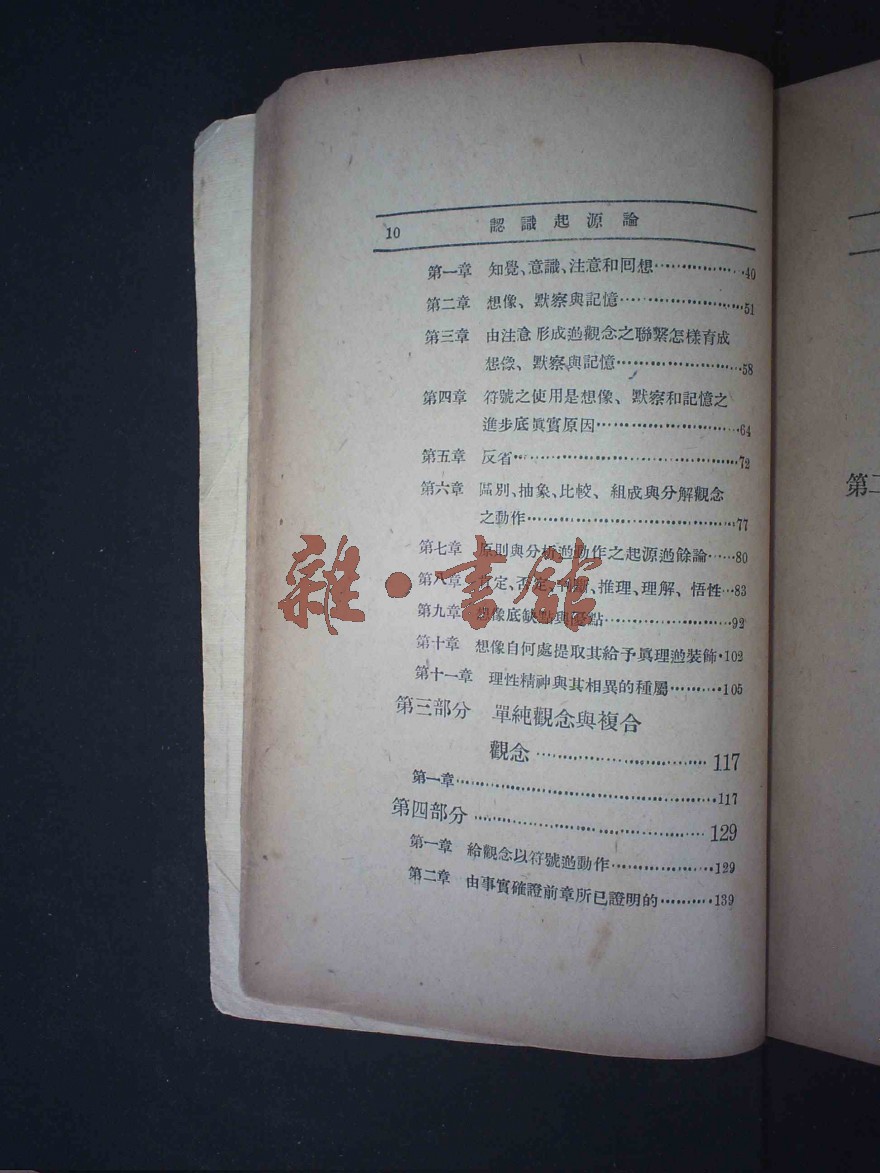 10 認識起源論
第一章 知覺、意識、注意和回想………………40
第二章 想像、默察與記憶………………51
第三章 由注意形成過觀念之聯繫怎樣育成
想像、默察與記憶………………58
第四章 符號之使用是想像、默察和記憶之
進步底眞實原因………………64
第五章 反省………………72
第六章 區別、抽象、比較、組成與分解觀念
之動作………………77
第七章 原則與分析過動作之起源過餘論……80
第八章 肯定、否定、判斷、推理、理解、悟性…83
第九章 想像底缺點與優點………………92
第十章 想像自何處提取其給予眞理過裝飾·102
第十一章 理性精神與其相異的種屬………105
第三部分 單純觀念與複合
觀念………………117
第一章………………117
第四部分………………129
第一章 給觀念以符號過動作………………129
第二章 由事實確證前章所已證明的………139
雜·書館
第二